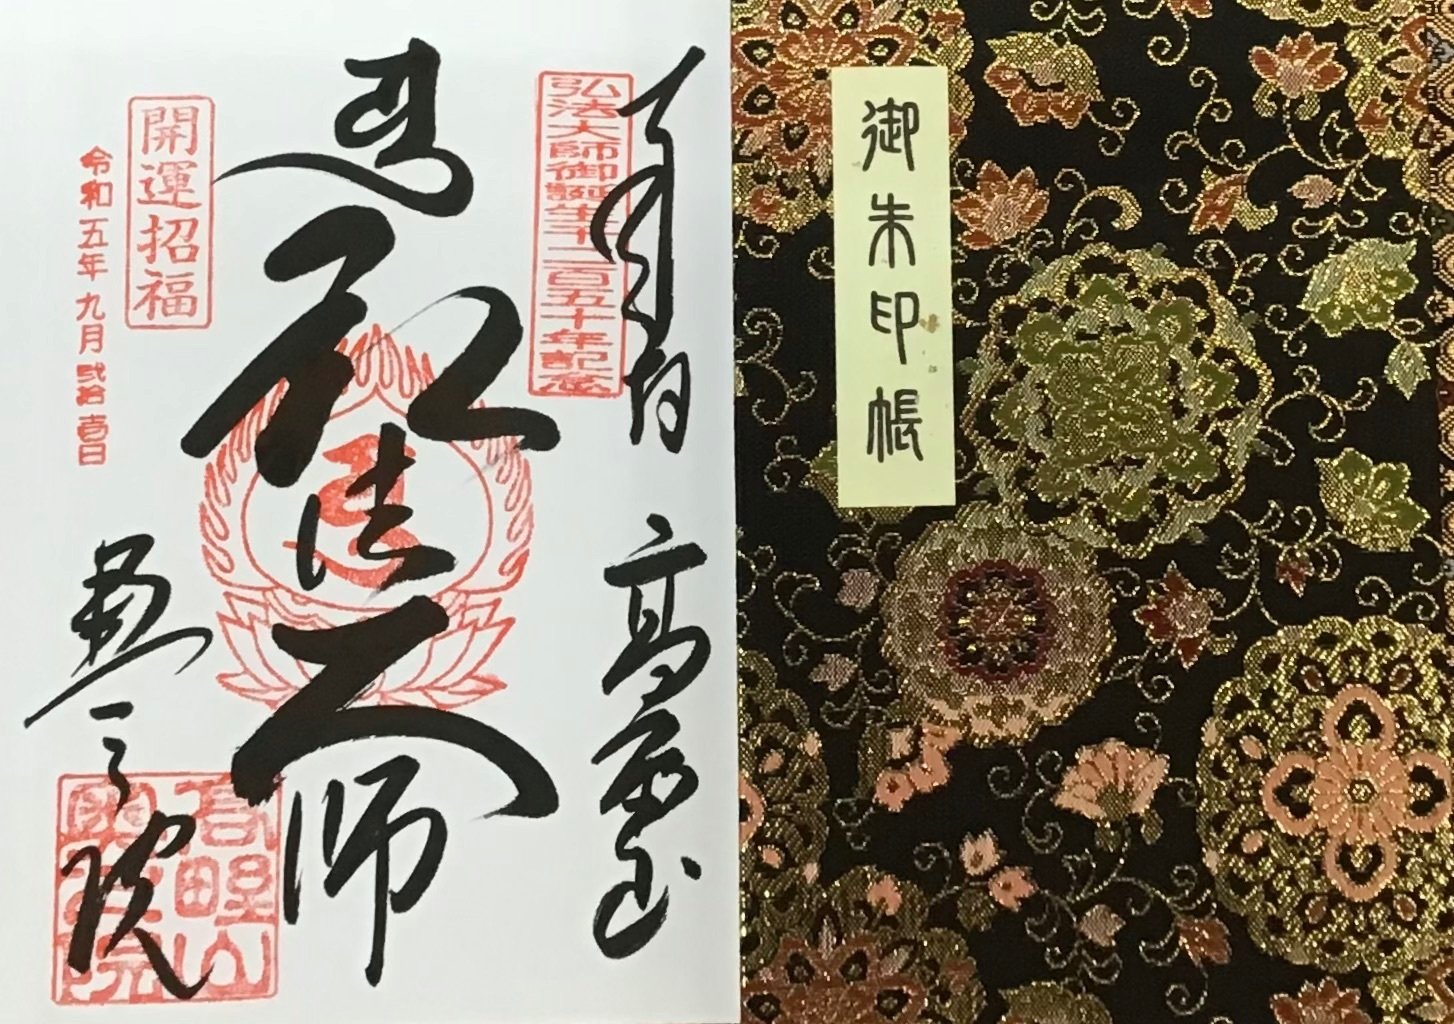 弘法大師御誕生千二百五十年記念
奉拝 高野山
弘法大師
開運招福
令和五年九月弐拾壱日
奥之院
高野山
奥之院
御朱印帳